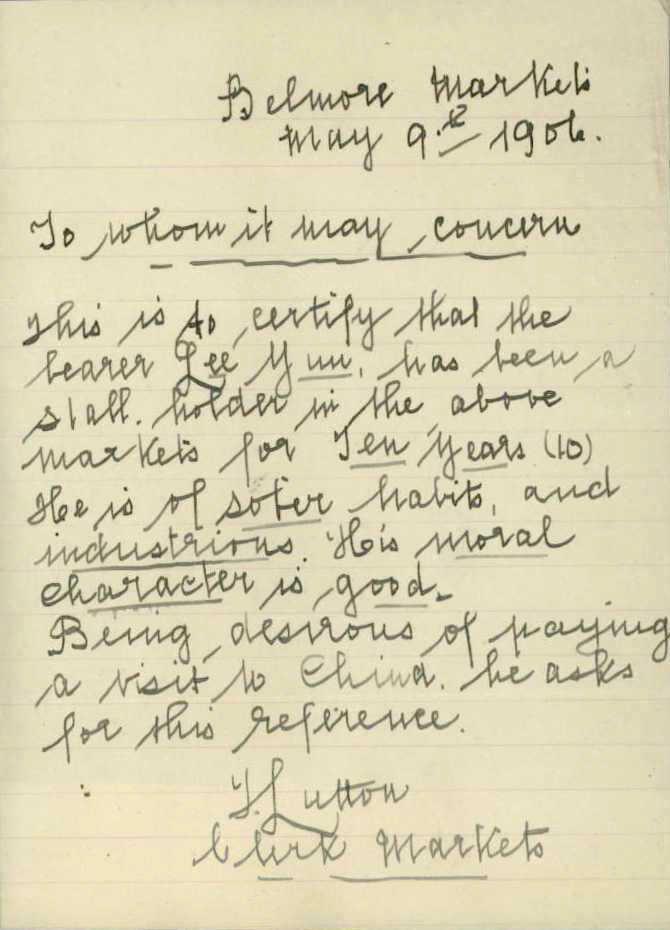 Belmore Markets
May 9.th 1906.
To whom it may concern
This is to certify that the
bearer Lee Yun, has been a
stall. holder in the above
markets for Ten Years (10)
He is of sober habits, and
industrious. His moral
character is good.
Being desirous of paying
a visit to China. he asks
for this reference.
T. Lutton
Clerk Markets